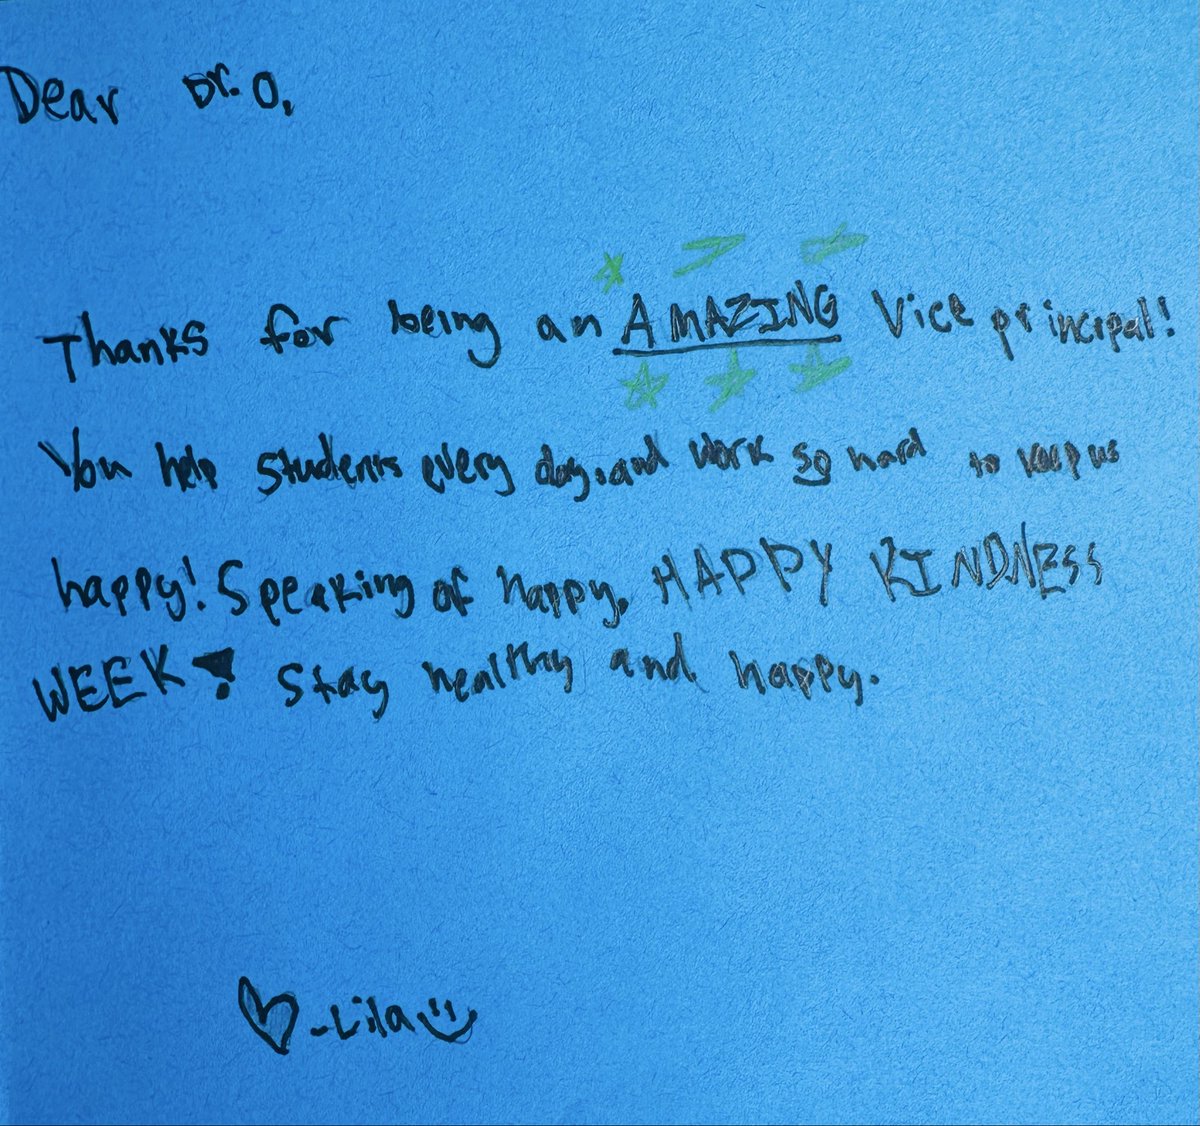 Dear Dr. O,
Thanks for being an AMAZING Vice principal!
You help students every day, and work so hard to keep us
happy! Speaking of happy, HAPPY KINDNESS
WEEK! Stay healthy and happy.
-Lila